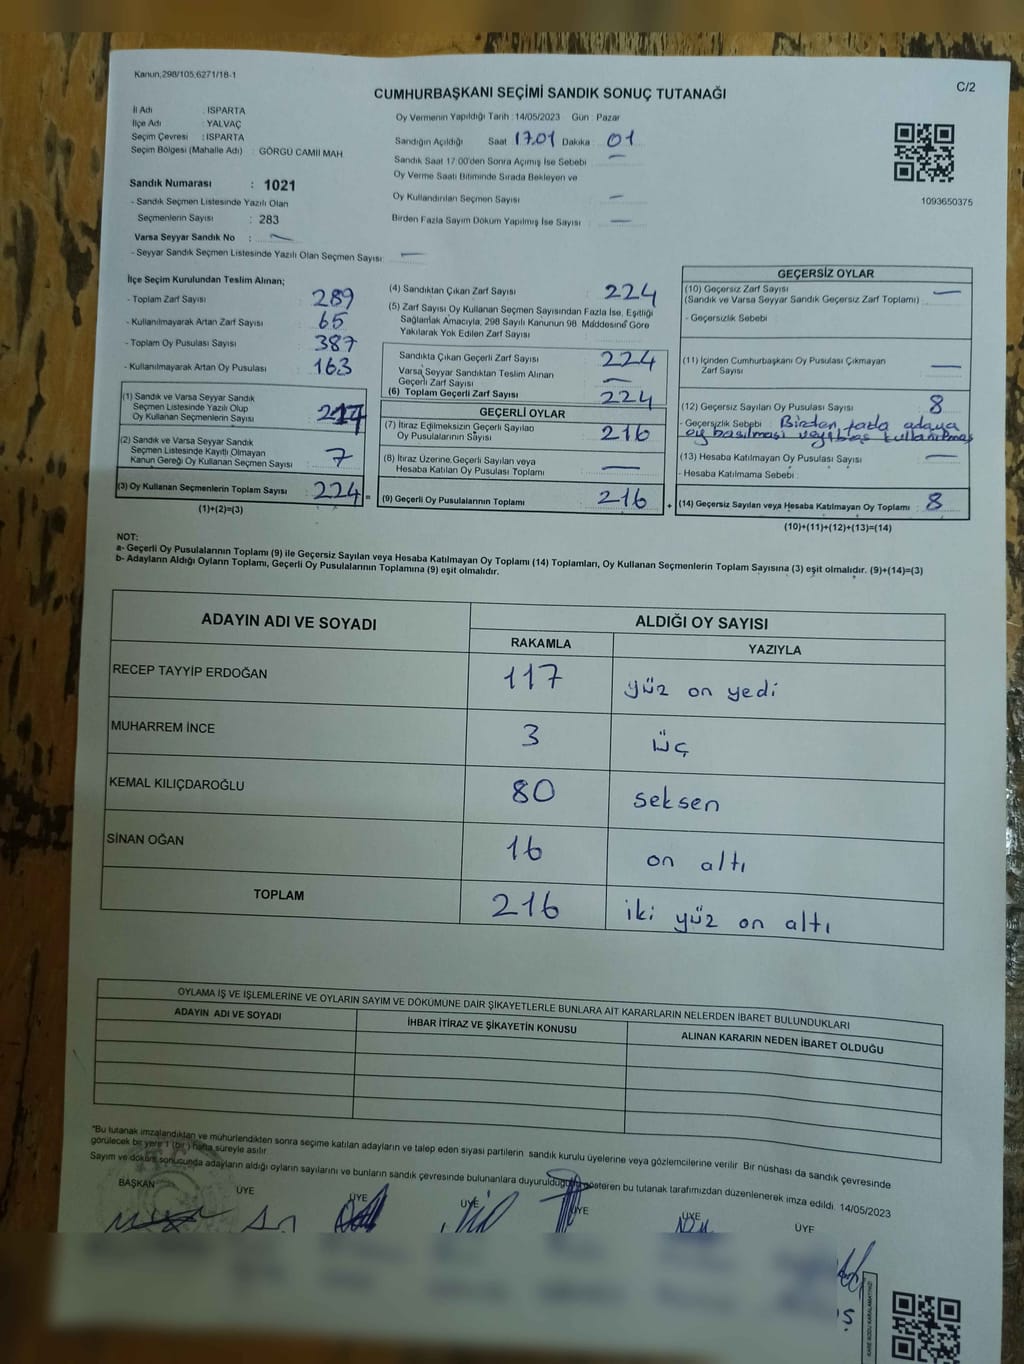 Kanun,298/105,6271/18-1
C/2
CUMHURBAŞKANI SEÇİMİ SANDIK SONUÇ TUTANAĞI
İl Adı : ISPARTA
İlçe Adı : YALVAÇ
Seçim Çevresi : ISPARTA
Seçim Bölgesi (Mahalle Adı) : GÖRGÜ CAMİİ MAH
Sandık Numarası : 1021
- Sandık Seçmen Listesinde Yazılı Olan
Seçmenlerin Sayısı : 283
Varsa Seyyar Sandık No : —
- Seyyar Sandık Seçmen Listesinde Yazılı Olan Seçmen Sayısı : —
Oy Vermenin Yapıldığı Tarih : 14/05/2023 Gün : Pazar
Sandığın Açıldığı Saat 17.01 Dakika : 01
Sandık Saat 17:00'den Sonra Açımış İse Sebebi : —
Oy Verme Saati Bitiminde Sırada Bekleyen ve
Oy Kullandırılan Seçmen Sayısı : —
Birden Fazla Sayım Döküm Yapılmış İse Sayısı : —
1093650375
İlçe Seçim Kurulundan Teslim Alınan;
- Toplam Zarf Sayısı : 289
- Kullanılmayarak Artan Zarf Sayısı : 65
- Toplam Oy Pusulası Sayısı : 387
- Kullanılmayarak Artan Oy Pusulası : 163
(1) Sandık ve Varsa Seyyar Sandık
Seçmen Listesinde Yazılı Olup
Oy Kullanan Seçmenlerin Sayısı : 217
(2) Sandık ve Varsa Seyyar Sandık
Seçmen Listesinde Kayıtlı Olmayan
Kanun Gereği Oy Kullanan Seçmen Sayısı : 7
(3) Oy Kullanan Seçmenlerin Toplam Sayısı : 224 =
(1)+(2)=(3)
(4) Sandıktan Çıkan Zarf Sayısı : 224
(5) Zarf Sayısı Oy Kullanan Seçmen Sayısından Fazla İse, Eşitliği
Sağlamak Amacıyla, 298 Sayılı Kanunun 98. Maddesine Göre
Yakılarak Yok Edilen Zarf Sayısı :
Sandıkta Çıkan Geçerli Zarf Sayısı : 224
Varsa Seyyar Sandıktan Teslim Alınan
Geçerli Zarf Sayısı : —
(6) Toplam Geçerli Zarf Sayısı : 224
GEÇERLİ OYLAR
(7) İtiraz Edilmeksizin Geçerli Sayılan
Oy Pusulalarının Sayısı : 216
(8) İtiraz Üzerine Geçerli Sayılan veya
Hesaba Katılan Oy Pusulası Toplamı : —
(9) Geçerli Oy Pusulalarının Toplamı : 216 +
GEÇERSİZ OYLAR
(10) Geçersiz Zarf Sayısı : —
(Sandık ve Varsa Seyyar Sandık Geçersiz Zarf Toplamı)
- Geçersizlik Sebebi :
(11) İçinden Cumhurbaşkanı Oy Pusulası Çıkmayan
Zarf Sayısı : —
(12) Geçersiz Sayılan Oy Pusulası Sayısı : 8
- Geçersizlik Sebebi : Birden fazla adaya
oy basılması
(13) Hesaba Katılmayan Oy Pusulası Sayısı : —
- Hesaba Katılmama Sebebi :
(14) Geçersiz Sayılan veya Hesaba Katılmayan Oy Toplamı : 8
(10)+(11)+(12)+(13)=(14)
NOT:
a- Geçerli Oy Pusulalarının Toplamı (9) ile Geçersiz Sayılan veya Hesaba Katılmayan Oy Toplamı (14) Toplamları, Oy Kullanan Seçmenlerin Toplam Sayısına (3) eşit olmalıdır. (9)+(14)=(3)
b- Adayların Aldığı Oyların Toplamı, Geçerli Oy Pusulalarının Toplamına (9) eşit olmalıdır.
ADAYIN ADI VE SOYADI ALDIĞI OY SAYISI
RAKAMLA YAZIYLA
RECEP TAYYİP ERDOĞAN 117 yüz on yedi
MUHARREM İNCE 3 üç
KEMAL KILIÇDAROĞLU 80 seksen
SİNAN OĞAN 16 on altı
TOPLAM 216 iki yüz on altı
OYLAMA İŞ VE İŞLEMLERİNE VE OYLARIN SAYIM VE DÖKÜMÜNE DAİR ŞİKAYETLERLE BUNLARA AİT KARARLARIN NELERDEN İBARET BULUNDUKLARI
ADAYIN ADI VE SOYADI İHBAR İTİRAZ VE ŞİKAYETİN KONUSU ALINAN KARARIN NEDEN İBARET OLDUĞU
*Bu tutanak imzalandıktan ve mühürlendikten sonra seçime katılan adayların ve talep eden siyasi partilerin sandık kurulu üyelerine veya gözlemcilerine verilir. Bir nüshası da sandık çevresinde
görülecek bir yere 1 (bir) hafta süreyle asılır.
Sayım ve döküm sonucunda adayların aldığı oyların sayılarını ve bunların sandık çevresinde bulunanlara duyurulduğunu gösteren bu tutanak tarafımızdan düzenlenerek imza edildi. 14/05/2023
BAŞKAN ÜYE ÜYE ÜYE ÜYE ÜYE ÜYE